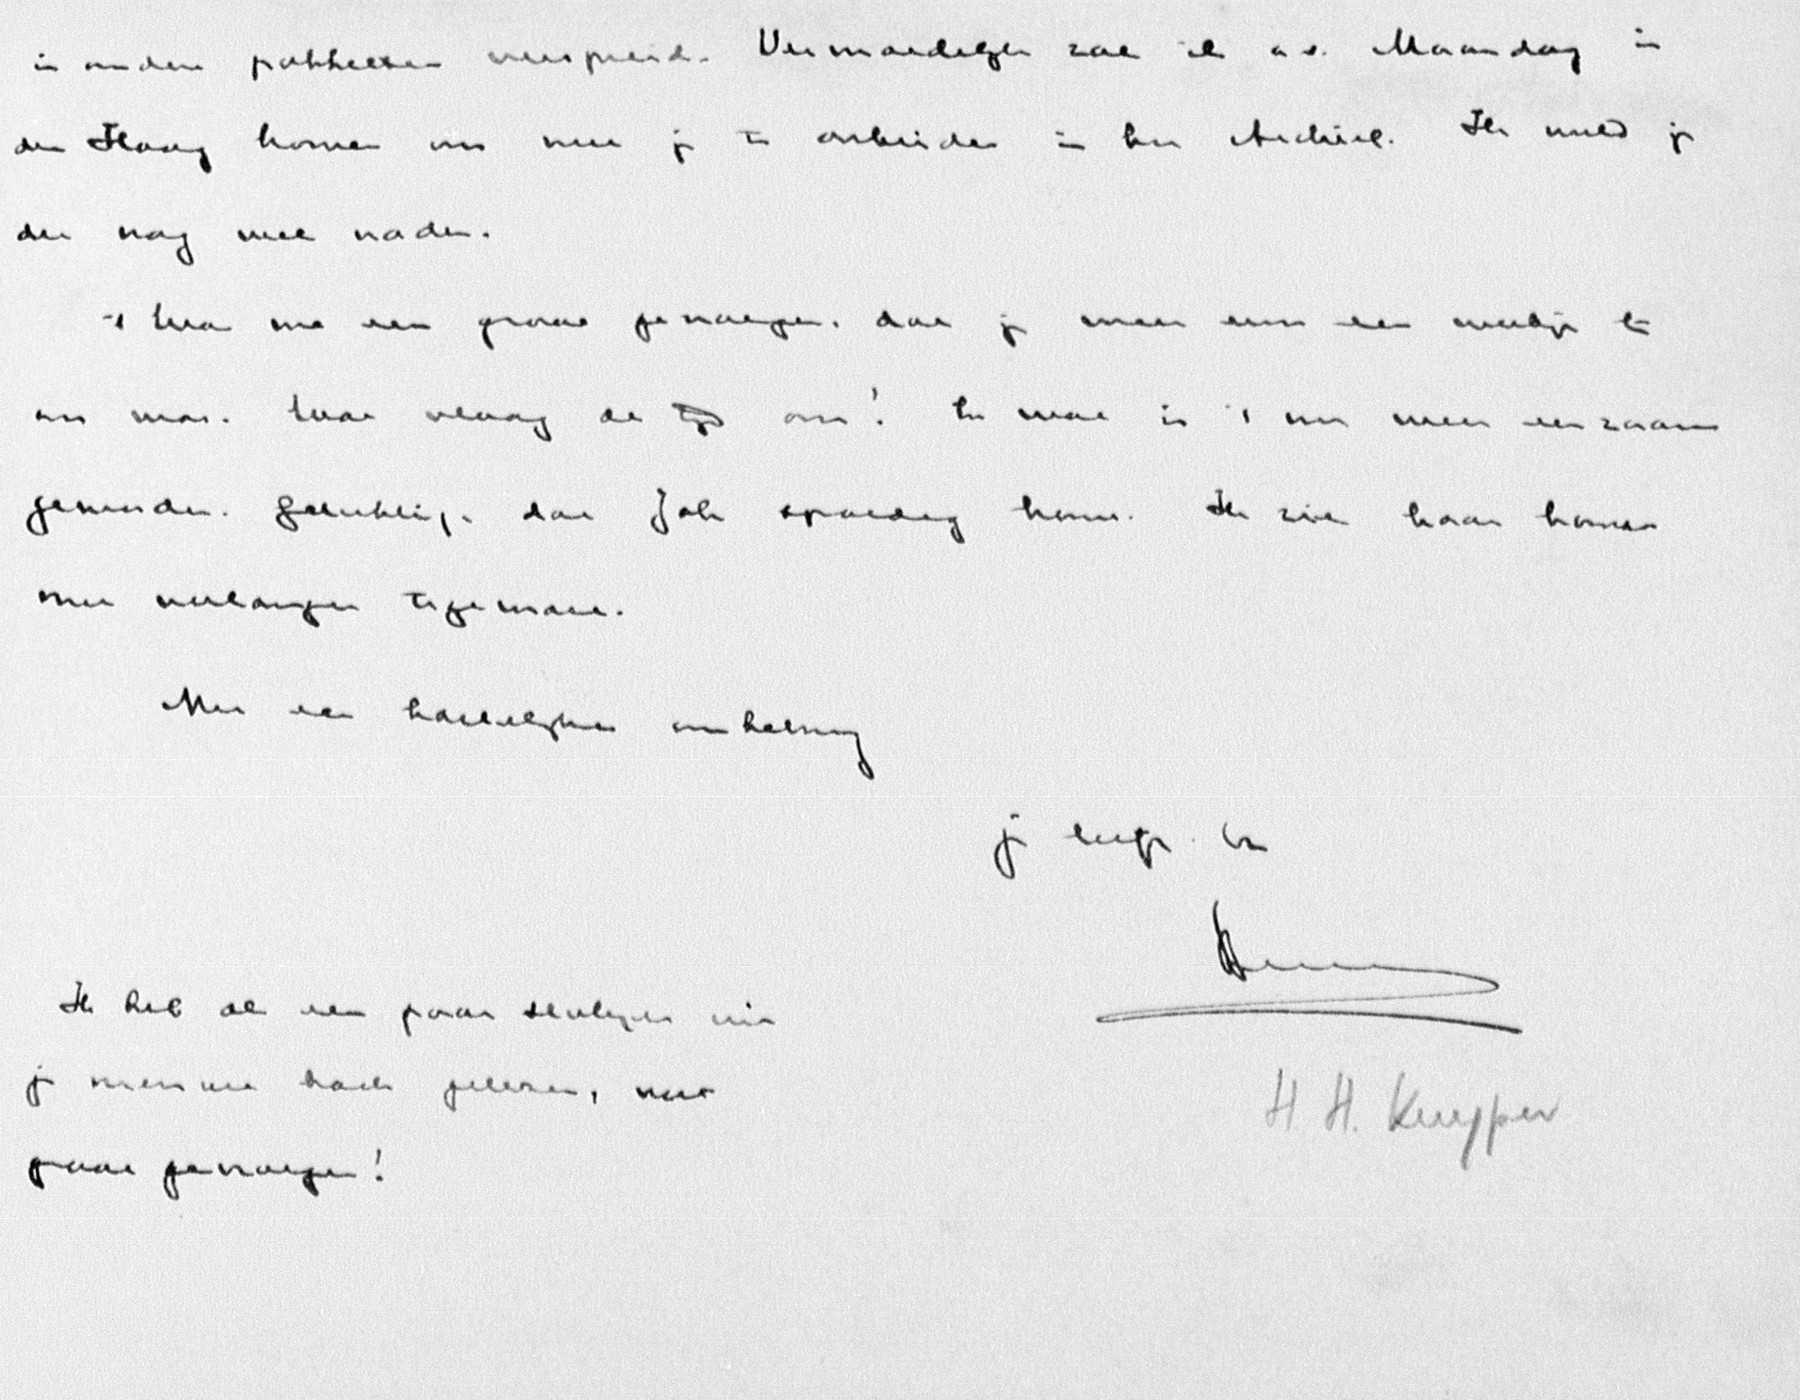 in andere pakketten verspreid. Vermoedelijk zal ik a.s. Maandag in
den Haag komen om met je te arbeiden in het Archief. Ik meld je
dit nog wel nader.
't was me een groot genoegen, dat je weer eens een weekje bij
ons was. Wat vloog de tijd om! En wat is 't nu weer eenzaam
geworden. Gelukkig, dat Joh spoedig komt. Ik zie haar komst
met verlangen tegemoet.
Met een hartelijken omhelzing
je liefh.
Ik heb al een paar stukjes uit
je nieuwe boek gelezen, met
groot genoegen!
H. H. Kuyper